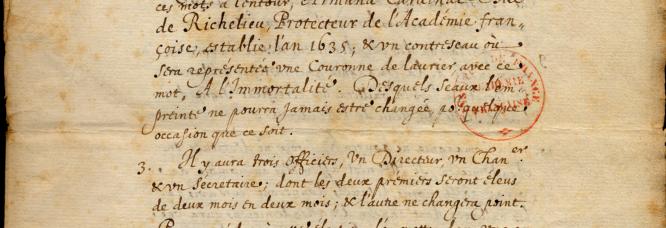 ces mots à l'entour, Armand Cardinal Duc
de Richelieu, Protecteur de l'Académie fran-
çoise, establie l'an 1635; & vn contreseau où
sera représentée vne Couronne de laurier avec ce
mot, A l'Immortalité. Desquels seaux l'em-
preinte ne pourra jamais estre changée, po^r quelque
occasion que ce soit.
3. Il y aura trois officiers, vn Directeur, vn Chan^er.
& vn secretaire; dont les deux premiers seront éleus
de deux mois en deux mois; & l'autre ne changera point.